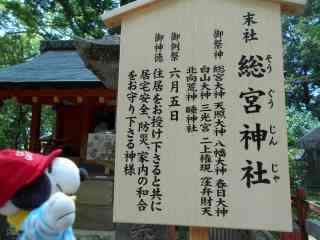 末社
総宮神社
そうぐうじんじゃ
御祭神 総宮大神 天照大神 八幡大神 春日大神
白山大神 三光宮 二上権現 窪弁財天
北向荒神 時神社
御例祭 六月五日
御神徳 住居をお授け下さると共に
居宅安全、防災、家内の和合
をお守り下さる神様